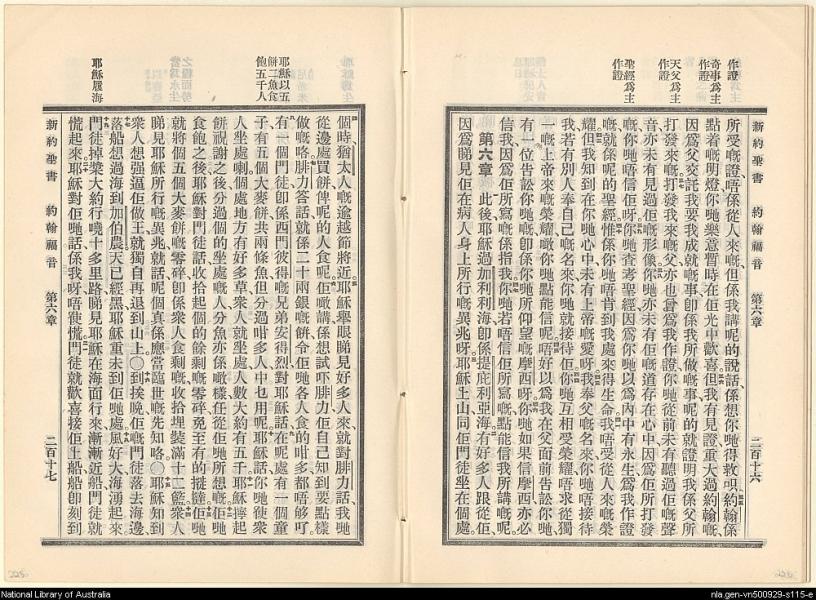 新約聖書 約翰福音 第六章 二百十六
作證
奇事爲主
作證
天父爲主
作證
聖經爲主
作證
所受嘅證唔係從人來嘅但係我講呢的說話係想你哋得救唄約翰係
點着嘅明燈你哋樂意暫時在佢光中歡喜但我有見證重大過約翰嘅
因爲父交託我要我成就嘅事卽係我所做嘅事呢的就證明我係父所
打發來嘅打發我來嘅父亦也曾爲我作證你哋從前未有聽過佢嘅聲
音亦未有見過佢嘅形像你哋亦未有佢嘅道存在心中因爲佢所打發
嘅你哋唔信佢呀你哋查考聖經因爲你哋以爲內中有永生爲我作證
嘅就係呢的聖經惟係你哋唔肯到我處來得生命我唔受從人來嘅榮
耀但我知到在你哋心中未有上帝嘅愛呀我奉父嘅名來你哋唔接待
我若有別人奉自己嘅名來你哋就接待佢你哋互相受榮耀唔求從獨
一嘅上帝來嘅榮耀噉你哋點能信呢唔好以爲我在父面前告訟你哋
有一位告訟你哋嘅卽係你哋所仰望嘅摩西呀你哋如果信摩西亦必
信我因爲佢所寫嘅係指我你哋若唔信佢所寫嘅點能信我所講嘅呢
第六章 此後耶穌過加利利海卽係提庇利亞海有好多人跟從佢
因爲睇見佢在病人身上所行嘅異兆呀耶穌上山同佢門徒坐在個處
耶穌以五
餅二魚食
飽五千人
耶穌履海
個時猶太人嘅逾越節將近耶穌舉眼睇見好多人來就對腓力話我哋
從邊處買餅俾呢的人食呢佢噉講係想試吓腓力佢自己知到要點樣
做嘅咯腓力答話就係二十兩銀嘅餅令佢哋各人食的咁多都唔够吖
有一個門徒卽係西門彼得嘅兄弟安得烈對耶穌話在呢處有一個童
子有五個大麥餅共兩條魚但分過咁多人中乜用呢耶穌話你哋使衆
人坐處喇個處地方有好多草衆人就坐處人數大約有五千耶穌擰起
餅祝謝之後分過個的坐處嘅人分魚亦係噉樣任從佢哋所想嘅佢哋
食飽之後耶穌對門徒話收拾起個的餘剩嘅零碎免至有的㨢𢶍佢哋
就將個五個大麥餅嘅零碎卽係衆人食剩嘅收拾埋裝滿十二籃衆人
睇見耶穌所行嘅異兆就話呢個眞係應當臨世嘅先知咯〇耶穌知到
衆人想强逼佢做王就獨自再退到山上〇到挨晚佢嘅門徒落去海邊
落船想過海到加伯農天已經黑耶穌重未到佢哋處風好大海湧起來
門徒掉槳大約行嘵十多里路睇見耶穌在海面行來漸漸近船門徒就
慌起來耶穌對佢哋話係我呀唔使慌門徒就歡喜接佢上船船卽刻到
新約聖書 約翰福音 第六章 二百十七
National Library of Australia
nla.gen-vn500929-s115-e